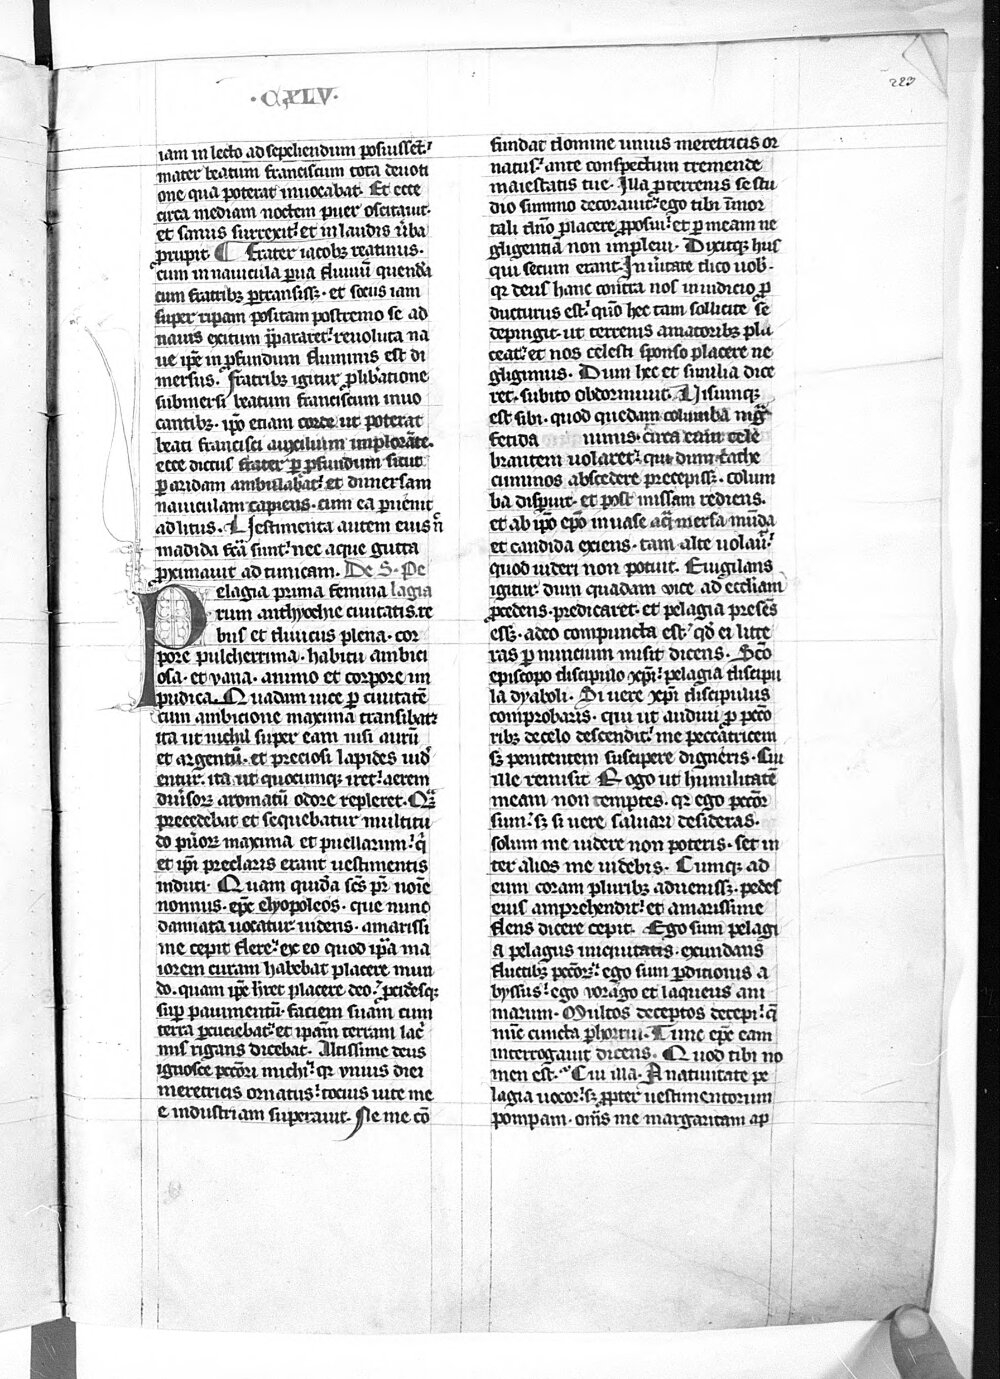 ·CXLV·
223
iam in lecto ad sepeliendum posuisset.
mater beatum franciscum tota deuoti
one qua poterat inuocabat. Et ecce
circa mediam noctem puer oscitauit.
et sanus surrexit. et in laudis ũba
ꝓrupit. ¶ Frater iacobꝫ reatinus.
cum in nauicula ꝑua fluuiũ quendã
cum fratribꝫ ꝑtransissꝫ. et socus iam
super ripam positam postremo se ad
nauis exitum p̃pararet. reuoluta na
ue ip̃e in ꝓfundum fluminis est di
mersus. fratribꝫ igitur ꝓ liƀatione
submersi beatum franciscum inuo
cantibꝫ. ip̃o etiam corde ut poterat
beati francisci auxilium implorãte.
ecce dictus frater ꝑ ꝓfundum sicut
ꝑ aridam ambulabat. et dimersam
nauiculam capiens. cum ea ꝑuenit
ad litus. Uestimenta autem eius ñ
madida fcã sunt. nec aque gutta
ꝓximauit ad tunicam. De S. Pe
Pelagia prima femina lagia
rum anthyochie ciuitatis. re
bus et diuicus plena. cor
pore pulcherrima. habitu ambici
osa. et uana. animo et corpore im
pudica. Quadam uice ꝑ ciuitatẽ
cum ambicione maxima transibat.
ita ut nichil super eam nisi aurũ
et argentũ. et preciosi lapides uidẽ
entur. ita ut quocumqꝫ iret. aerem
diũsoꝝ aromatũ odore repleret. Quã
precedebat et sequebatur multitu
do puoꝝ maxima et puellarum. q̃
et ip̃i preclaris erant uestimentis
induti. Quam quidã scs̃ pr̃ noĩe
nonnus. epc̃ elyopoleos. que nunc
damiata uocatur. uidens. amarissi
me cepit flere. ex eo quod ip̃a ma
iorem curam habebat placere mun
do. quam ip̃e h̃ret placere deo. ꝓcidesqꝫ
suꝑ pauimentũ. faciem suam cum
terra ꝑcuciebat. et ip̃am terram lac̃
mis rigans dicebat. Altissime deus
ignosce pecc̃ori michi. qꝛ unius diei
meretricis ornatus. tocius uite me
e industriam superauit. Ne me cõ
fundat domine unius meretricis or
natus. ante conspectum tremende
maiestatis tue. Illa ꝑ terrenis se stu
dio summo decorauit. ego tibi ĩmor
tali dño placere ꝓposui. et ꝑ meam ne
gligentiã non impleui. Dixitqꝫ hus
qui secum erant. In ũitate dico uob.
qꝛ deus hanc contra nos in iudicio ꝓ
ducturus est. quõ hec tam sollicite se
depingit. ut terrenis amatoribꝫ pla
ceat. et nos celesti sponso placere ne
gligimus. Dum hec et similia dice
ret. subito obdormiuit. Uisumqꝫ
est sibi. quod quedam columba nigra
fetida nimis. circa eum cele
brantem uolaret. qui dum cathe
cuminos abscedere precepissꝫ. colum
ba disparuit. et post missam rediens.
et ab ip̃o ep̃o in uase aq̃ mersa mũda
et candida exiens. tam alte uolauit.
quod uideri non potuit. Euigilans
igitur. dum quadam uice ad eccliam
ꝓcedens. predicaret. et pelagia presẽs
essꝫ. adeo compuncta est. qđ ei litte
ras ꝑ nuncium misit dicens. Sc̃o
episcopo discipulo xp̃i. pelagia discipu
la dyaboli. Si uere xp̃i discipulus
comprobaris. qui ut audiui ꝓ pecc̃o
ribꝫ de celo descendit. me peccatricem
sꝫ penitentem suscipere digneris. Cui
ille remisit. Rogo ut humilitatẽ
meam non temptes. qꝛ ego pecc̃or
sum. sꝫ si uere saluari desideras.
solum me uidere non poteris. set in
ter alios me uidebis. Cumqꝫ ad
eum coram pluribꝫ aduenissꝫ. pedes
eius amprehendit. et amarissime
flens dicere cepit. Ego sum pelagi
a pelagus iniquitatis. exundans
fluctibꝫ pecc̃oꝝ. ego sum ꝑditionis a
byssus. ego uorago et laqueus ani
marum. Multos deceptos decepi. q̃
nũc cuncta ꝑhorrui. Tunc epc̃ eam
interrogauit dicens. Quod tibi no
men est. Cui illa. A natiuitate pe
lagia uocor. sꝫ ꝓpter uestimentorum
pompam. om̃s me margaritam ap